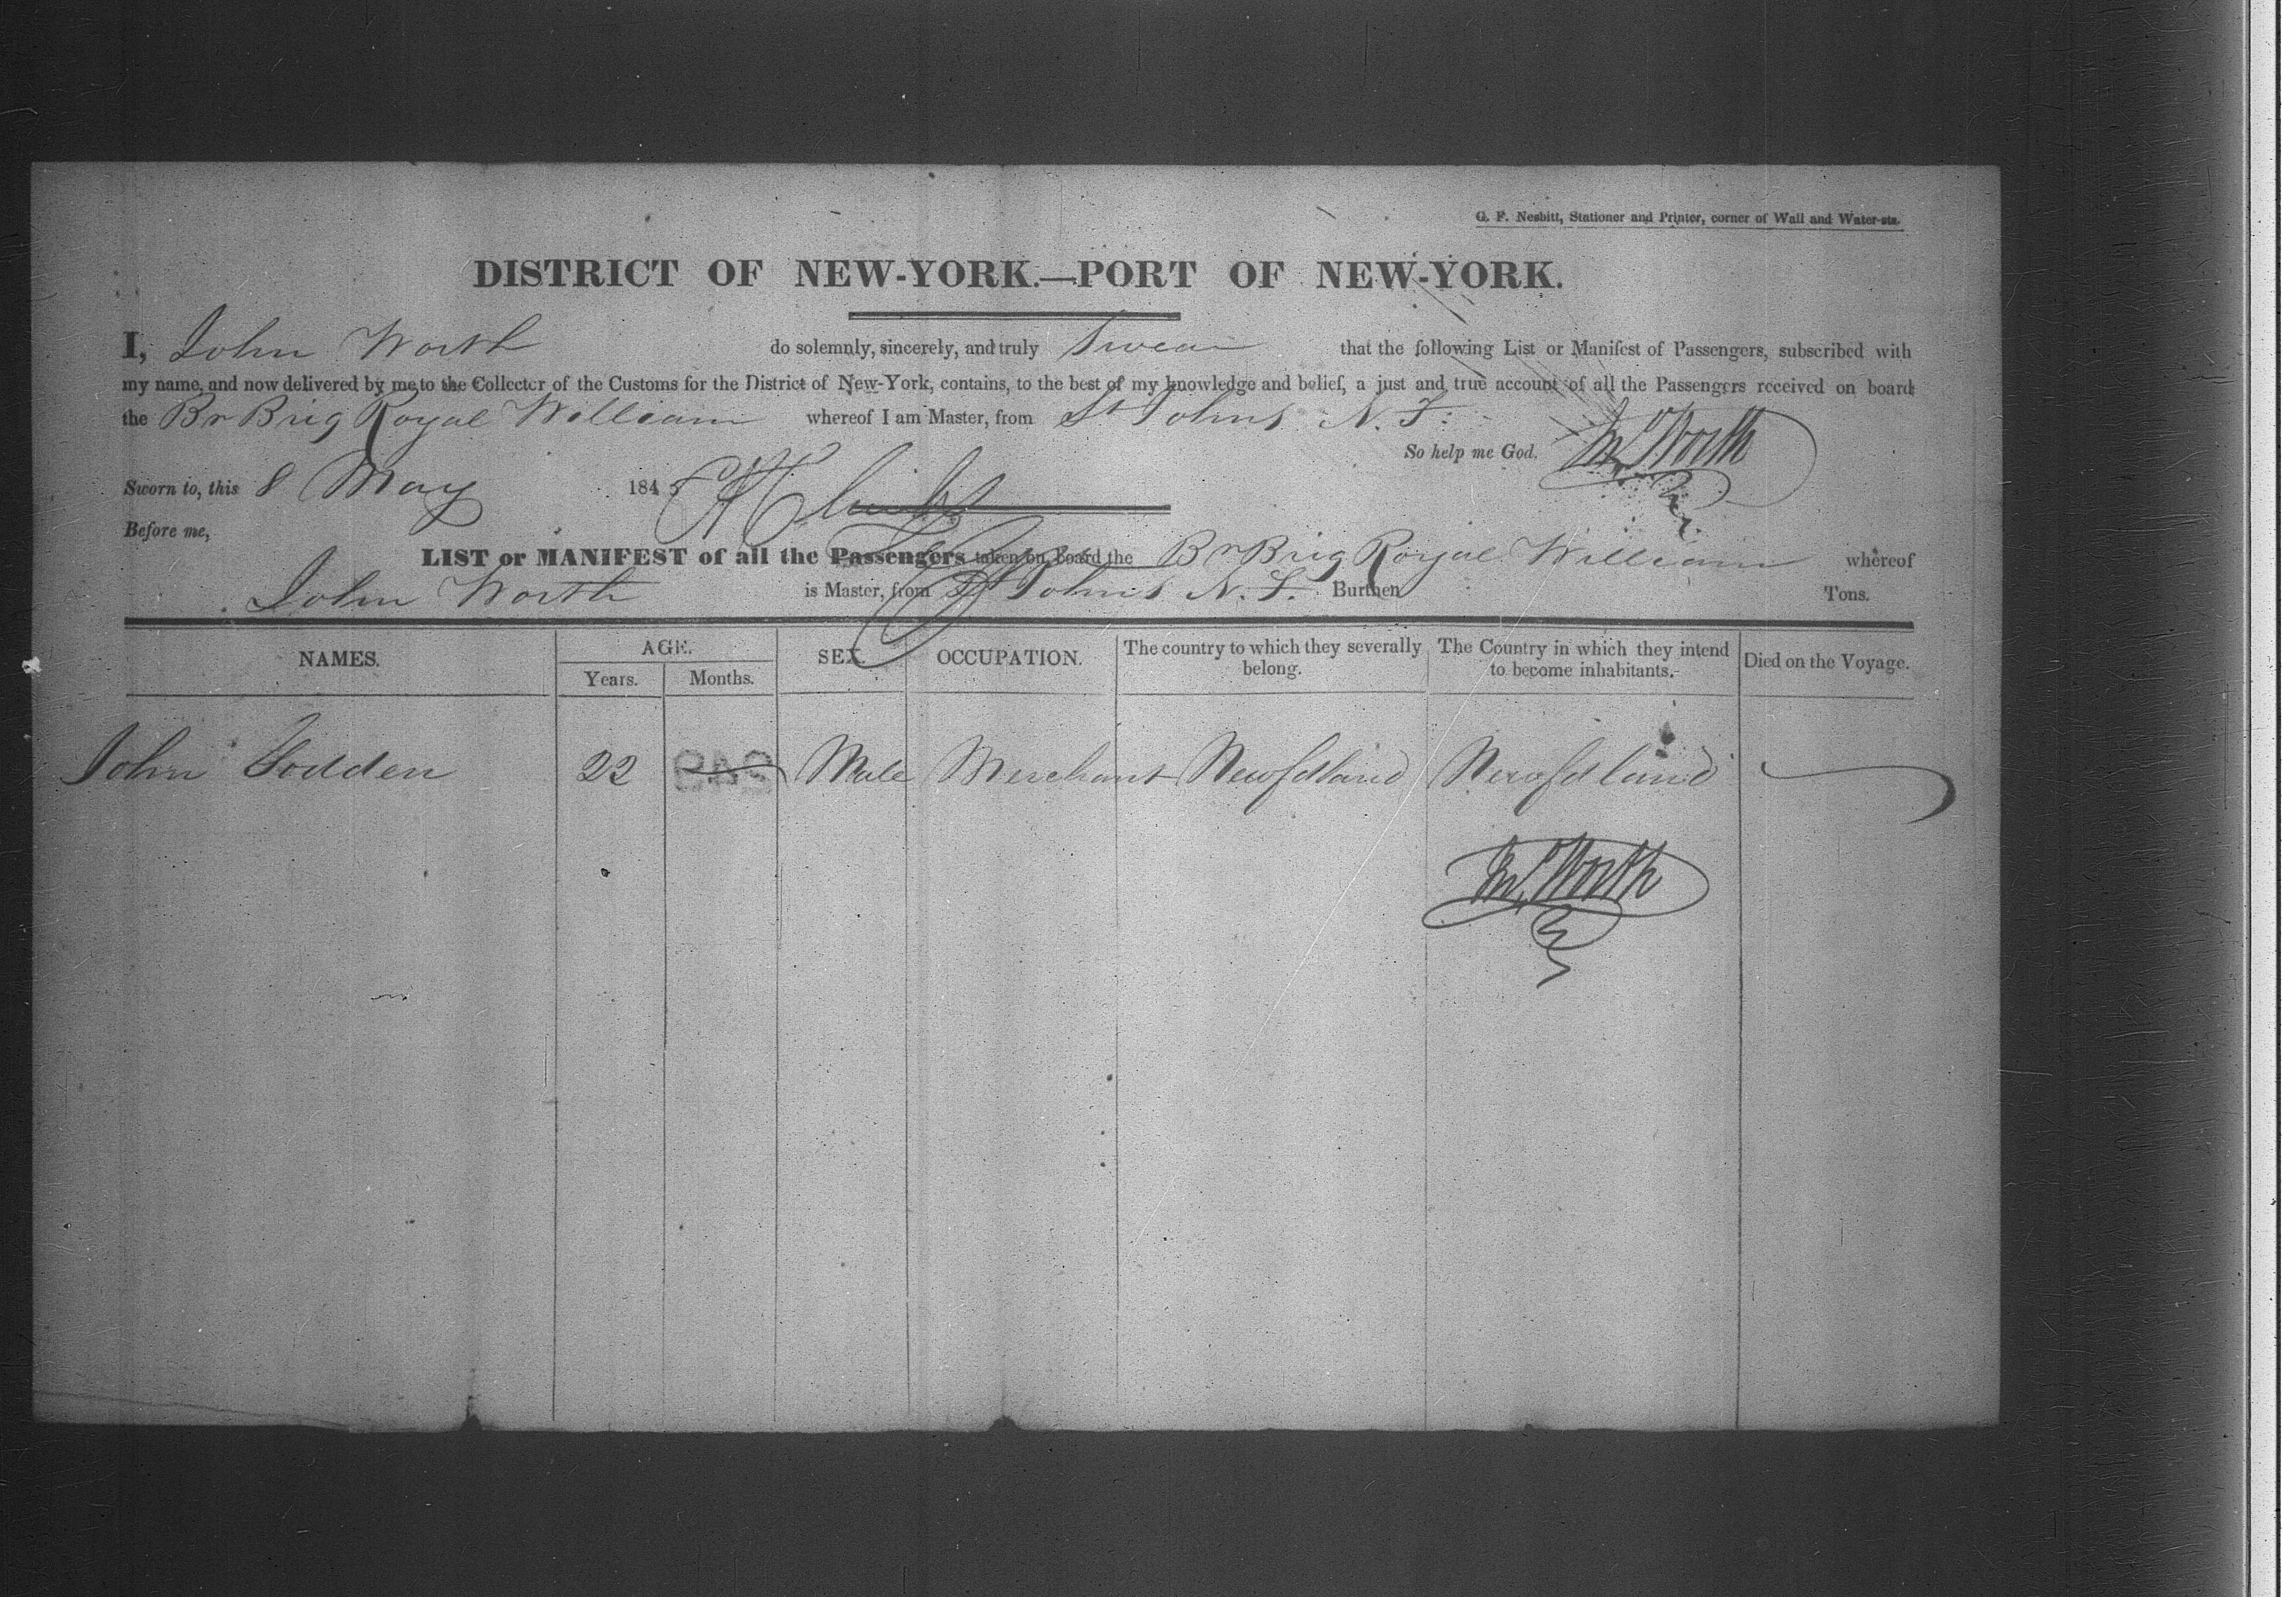 G. F. Nesbitt, Stationer and Printer, corner of Wall and Water-sts.
DISTRICT OF NEW-YORK.—PORT OF NEW-YORK.
I, John Worth do solemnly, sincerely, and truly Swear that the following List or Manifest of Passengers, subscribed with
my name, and now delivered by me to the Collector of the Customs for the District of New-York, contains, to the best of my knowledge and belief, a just and true account of all the Passengers received on board
the Br Brig Royal William whereof I am Master, from St Johns N. F.
So help me God. Jno Worth
Sworn to, this 8 May 1845
Before me,
LIST or MANIFEST of all the Passengers taken on board the Br Brig Royal William whereof
John Worth is Master, from St Johns N. F. Burthen Tons.
NAMES. AGE. SEX. OCCUPATION. The country to which they severally belong. The Country in which they intend to become inhabitants. Died on the Voyage.
Years. Months.
John Godden 22 Male Merchant Newfdland Newfdland
Jno Worth